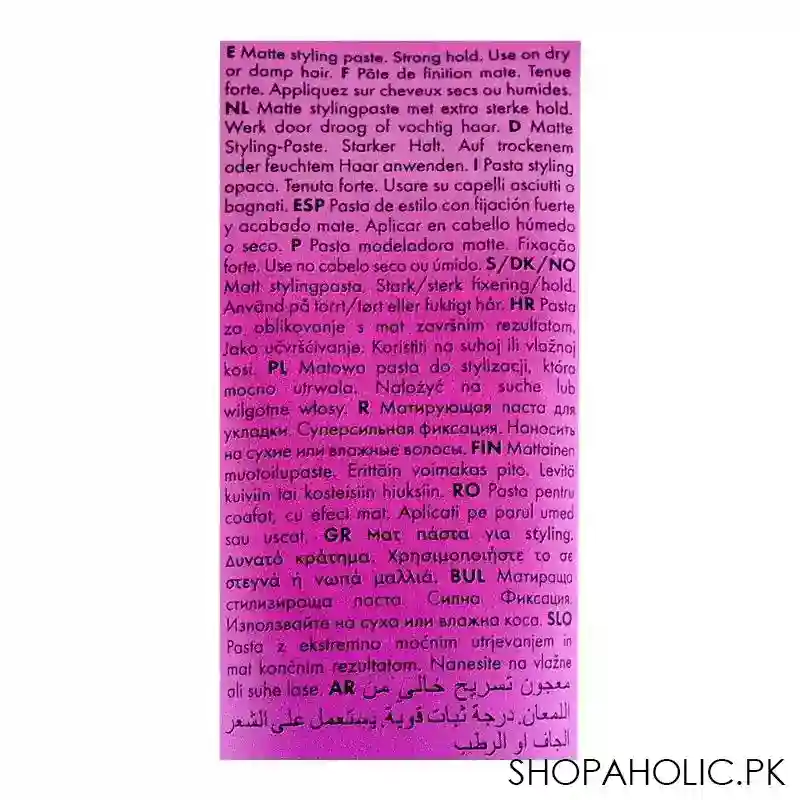 E Matte styling paste. Strong hold. Use on dry
or damp hair. F Pâte de finition mate. Tenue
forte. Appliquez sur cheveux secs ou humides.
NL Matte stylingpaste met extra sterke hold.
Werk door droog of vochtig haar. D Matte
Styling-Paste. Starker Halt. Auf trockenem
oder feuchtem Haar anwenden. I Pasta styling
opaca. Tenuta forte. Usare su capelli asciutti o
bagnati. ESP Pasta de estilo con fijación fuerte
y acabado mate. Aplicar en cabello húmedo
o seco. P Pasta modeladora matte. Fixação
forte. Use no cabelo seco ou úmido. S/DK/NO
Matt stylingpasta. Stark/sterk fixering/hold.
Använd på torrt/tørt eller fuktigt hår. HR Pasta
za oblikovanje s mat završnim rezultatom.
Jako učvršćivanje. Koristiti na suhoj ili vlažnoj
kosi. PL Matowa pasta do stylizacji, która
mocno utrwala. Nałożyć na suche lub
wilgotne włosy. R Матирующая паста для
укладки. Суперсильная фиксация. Наносить
на сухие или влажные волосы. FIN Mattainen
muotoilupaste. Erittäin voimakas pito. Levitä
kuiviin tai kosteisiin hiuksiin. RO Pasta pentru
coafat, cu efect mat. Aplicati pe parul umed
sau uscat. GR Ματ πάστα για styling.
Δυνατό κράτημα. Χρησιμοποιήστε το σε
στεγνά ή νωπά μαλλιά. BUL Матираща
стилизираща паста. Силна Фиксация.
Използвайте на суха или влажна коса. SLO
Pasta z ekstremno močnim utrjevanjem in
mat končnim rezultatom. Nanesite na vlažne
ali suhe lase. AR معجون تسريح خالي من
اللمعان. درجة ثبات قوية. يستعمل على الشعر
الجاف او الرطب
SHOPAHOLIC.PK